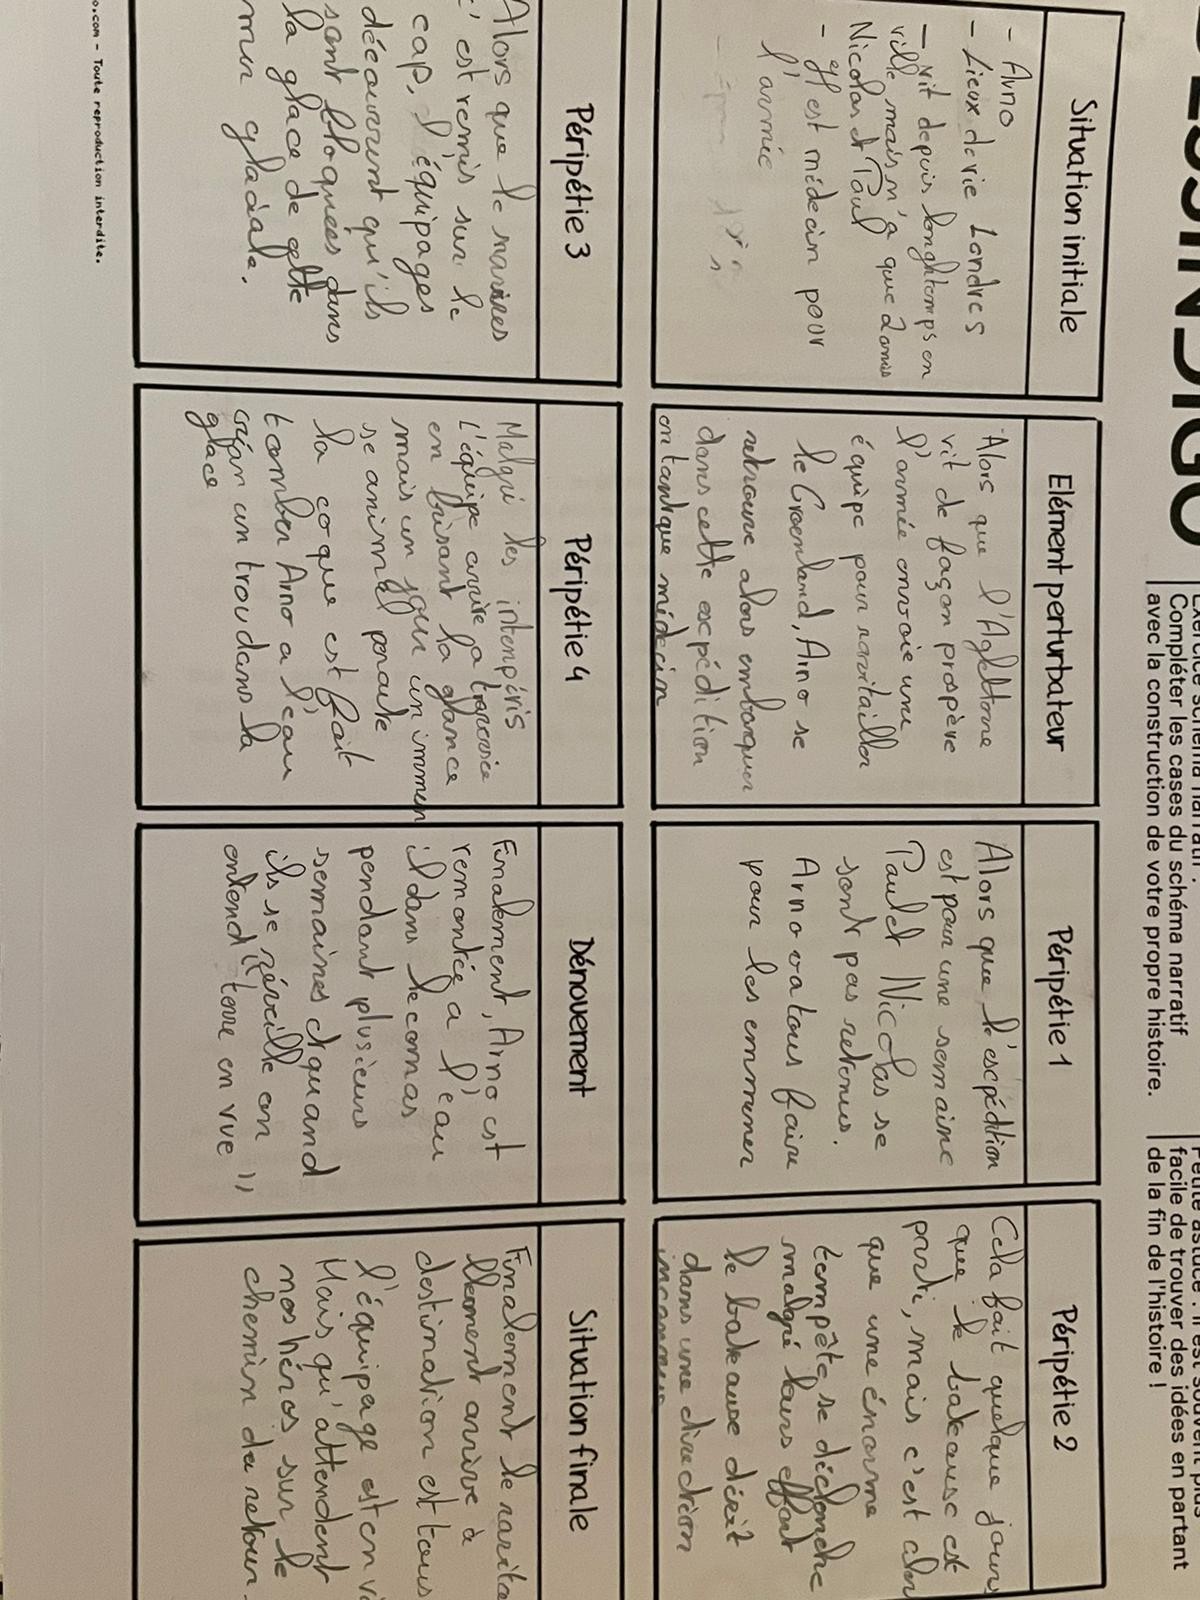 DESSINDIGO
Compléter les cases du schéma narratif
avec la construction de votre propre histoire.
facile de trouver des idées en partant
de la fin de l'histoire !
Situation initiale
- Arno
- Lieux de vie Londres
- vit depuis longtemps en
ville mais n'a que 2 amis
Nicolas et Paul
- Il est médecin pour
l'armée
Elément perturbateur
Alors que l'Agleterre
vit de façon prospère
l'armée envoie une
équipe pour ravitailler
le Groenland, Arno se
retrouve alors embarquer
dans cette expédition
en tant que médecin
Péripétie 1
Alors que l'expédition
est pour une semaine
Paul et Nicolas se
sont pas retenus.
Arno va tous faire
pour les emmener
Péripétie 2
Cela fait quelque jours
que le bateause est
parti, mais c'est alor
que une énorme
tempête se déclenche
malgré leurs effort
le bateause dérit
dans une direction
inconnue
Péripétie 3
Alors que le navires
c'est remis sur le
cap, l'équipages
découvrent qu'ils
sont bloquées dans
la glace de cette
mer glaciale.
Péripétie 4
Malgré les intempéris
l'équipe arrive sa traversée
en brisant la glance
mais un jour un immen
se animal percute
la coque est fait
tomber Arno a l'eau
créan un trou dans la
glace
Dénouement
Finalement, Arno est
remontée a l'eau
il dans le comas
pendant plusieurs
semaines et quand
ils se réveille on
entend "terre en vue"
Situation finale
Finalement le ravita
llement arrive à
destination est tous
l'équipage est en vi
Mais qu'attendent
nos héros sur le
chemin du retour.
o.com - Toute reproduction interdite.